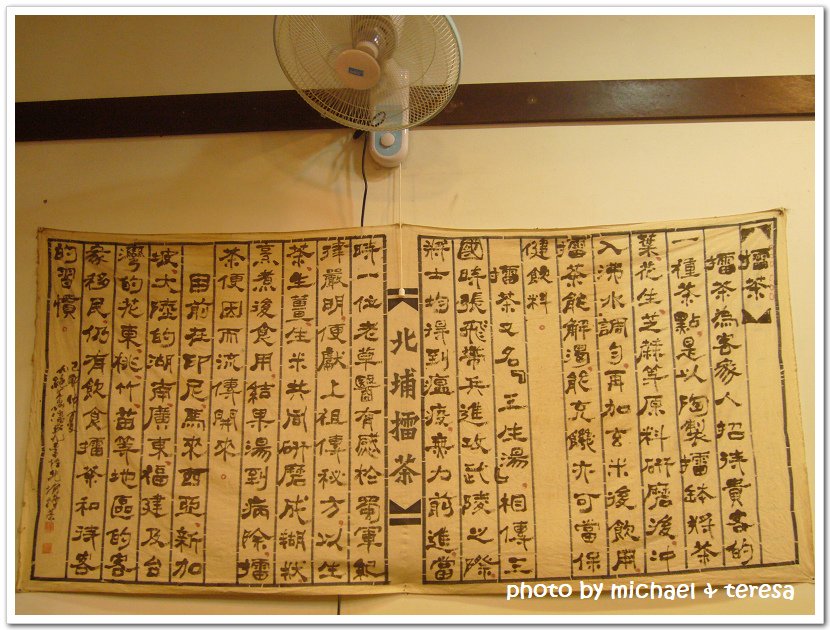 擂茶
擂茶為客家人招待貴客的
一種茶點是以陶製擂缽將茶
葉花生芝麻等原料研磨後沖
入沸水調勻再加玄米後飲用
擂茶能解渴能充饑亦可當保
健飲料
擂茶又名『三生湯』相傳三
國時張飛帶兵進攻武陵之際
將士均得到瘟疫無力前進當
北埔擂茶
時一位老草醫有感於蜀軍紀
律嚴明便獻上祖傳秘方以生
茶生薑生米共同研磨成糊狀
烹煮後食用結果湯到病除擂
茶便因而流傳開來
目前在印尼馬來西亞新加
坡大陸的湖南廣東福建及台
灣的花東桃竹苗等地區的客
家移民仍有飲食擂茶和待客
的習慣
photo by michael & teresa